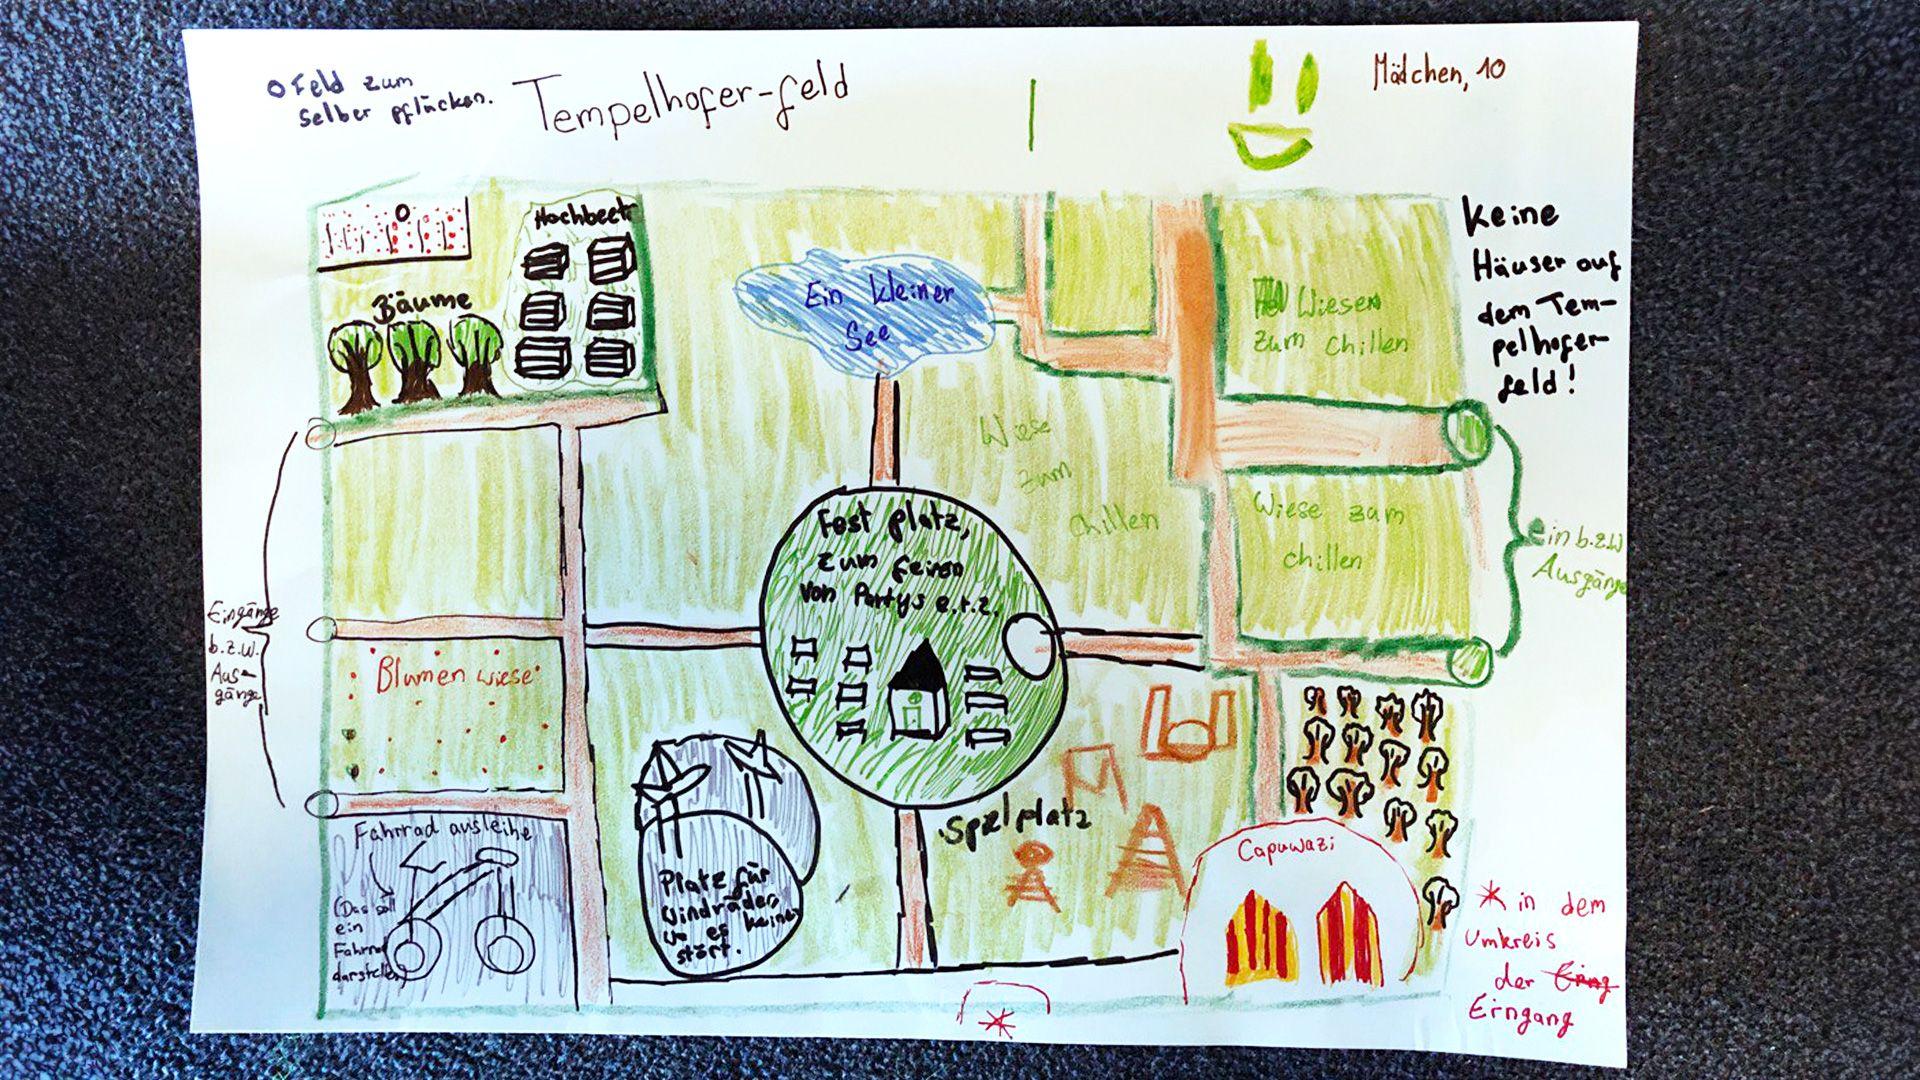 O Feld zum
selber pflücken.
Tempelhofer-feld
Mädchen, 10
Hochbeet
Bäume
Ein kleiner
See
Wiesen
zum chillen
Keine
Häuser auf
dem Tem-
pelhofer-
feld!
Wiese
zum
chillen
Wiese zum
chillen
ein b.z.w
Ausgänge
Fest platz,
zum feiren
von Partys e.t.z.
Eingänge
b.z.w.
Aus-
gänge
Blumen wiese
Spielplatz
Fahrrad ausleihe
(Das soll
ein
Fahrrad
darstellen)
Platz für
Windräder
wo es keinen
stört.
Capuwazi
* in dem
Umkreis
der
Eingang
*